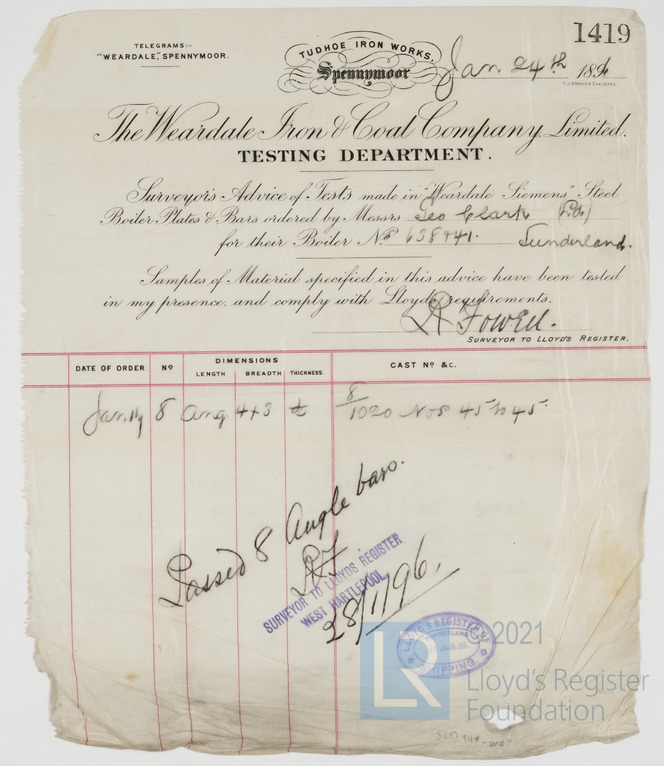 1419
TELEGRAMS:-
"WEARDALE," SPENNYMOOR.
TUDHOE IRON WORKS,
Spennymoor
Jan. 24th 1896
The Weardale Iron & Coal Company Limited.
TESTING DEPARTMENT.
Surveyor's Advice of Tests made in "Weardale Siemens" Steel
Boiler Plates & Bars ordered by Messrs Geo Clark (Ld)
for their Boiler No 638941. Sunderland.
Samples of Material specified in this advice have been tested
in my presence, and comply with Lloyds requirements.
R Fowell.
SURVEYOR TO LLOYD'S REGISTER.
DATE OF ORDER No DIMENSIONS CAST No &c.
LENGTH BREADTH THICKNESS
Jan. 14 8 Ang 4x3 8/1020 Nos 45 to 45
Passed 8 Angle bars.
R.F.
SURVEYOR TO LLOYDS REGISTER
WEST HARTLEPOOL
28/1/96.
LLOYD'S REGISTER OF
SUNDERLAND
SHIPPING
LR
© 2021
Lloyd's Register
Foundation